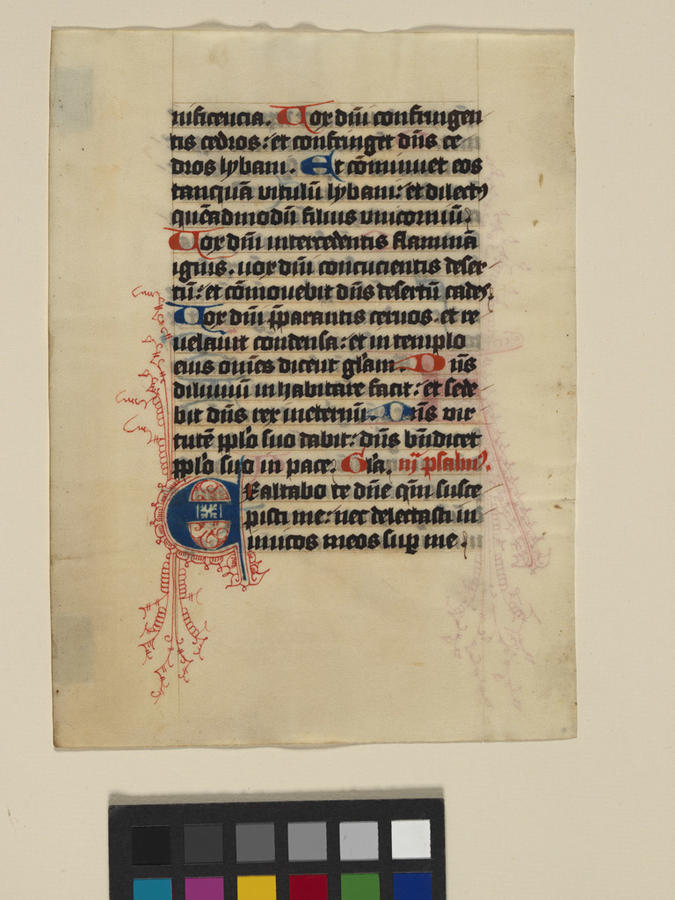 nificencia. Vox dñi confringen
tis cedros: et confringet dñs ce
dros lybani. Et cõminuet eos
tanquã vitulũ lybani: et dilectꝰ
quẽadmodũ filius vnicorniũ.
Vox dñi intercedentis flammã
ignis. uox dñi concucientis deser
tũ: et cõmouebit dñs desertũ cades.
Vox dñi p̃parantis ceruos. et re
uelauit condensa: et in templo
eius om̃es dicent gl̃am. Dñs
diluuiũ inhabitare facit: et sede
bit dñs rex ineternũ. Dñs vir
tutẽ pp̃lo suo dabit: dñs bñdicet
pp̃lo suo in pace. Gl̃a. psalmꝰ.
Exaltabo te dñe qm̃ susce
pisti me: nec delectasti in
imicos meos sup̱ me.